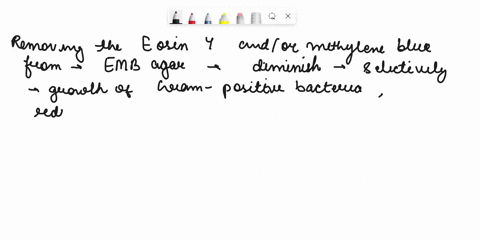 Removing the Eosin Y and/or methylene blue
from → EMB agar → diminish → selectively
→ growth of Gram-positive bacteria,
red